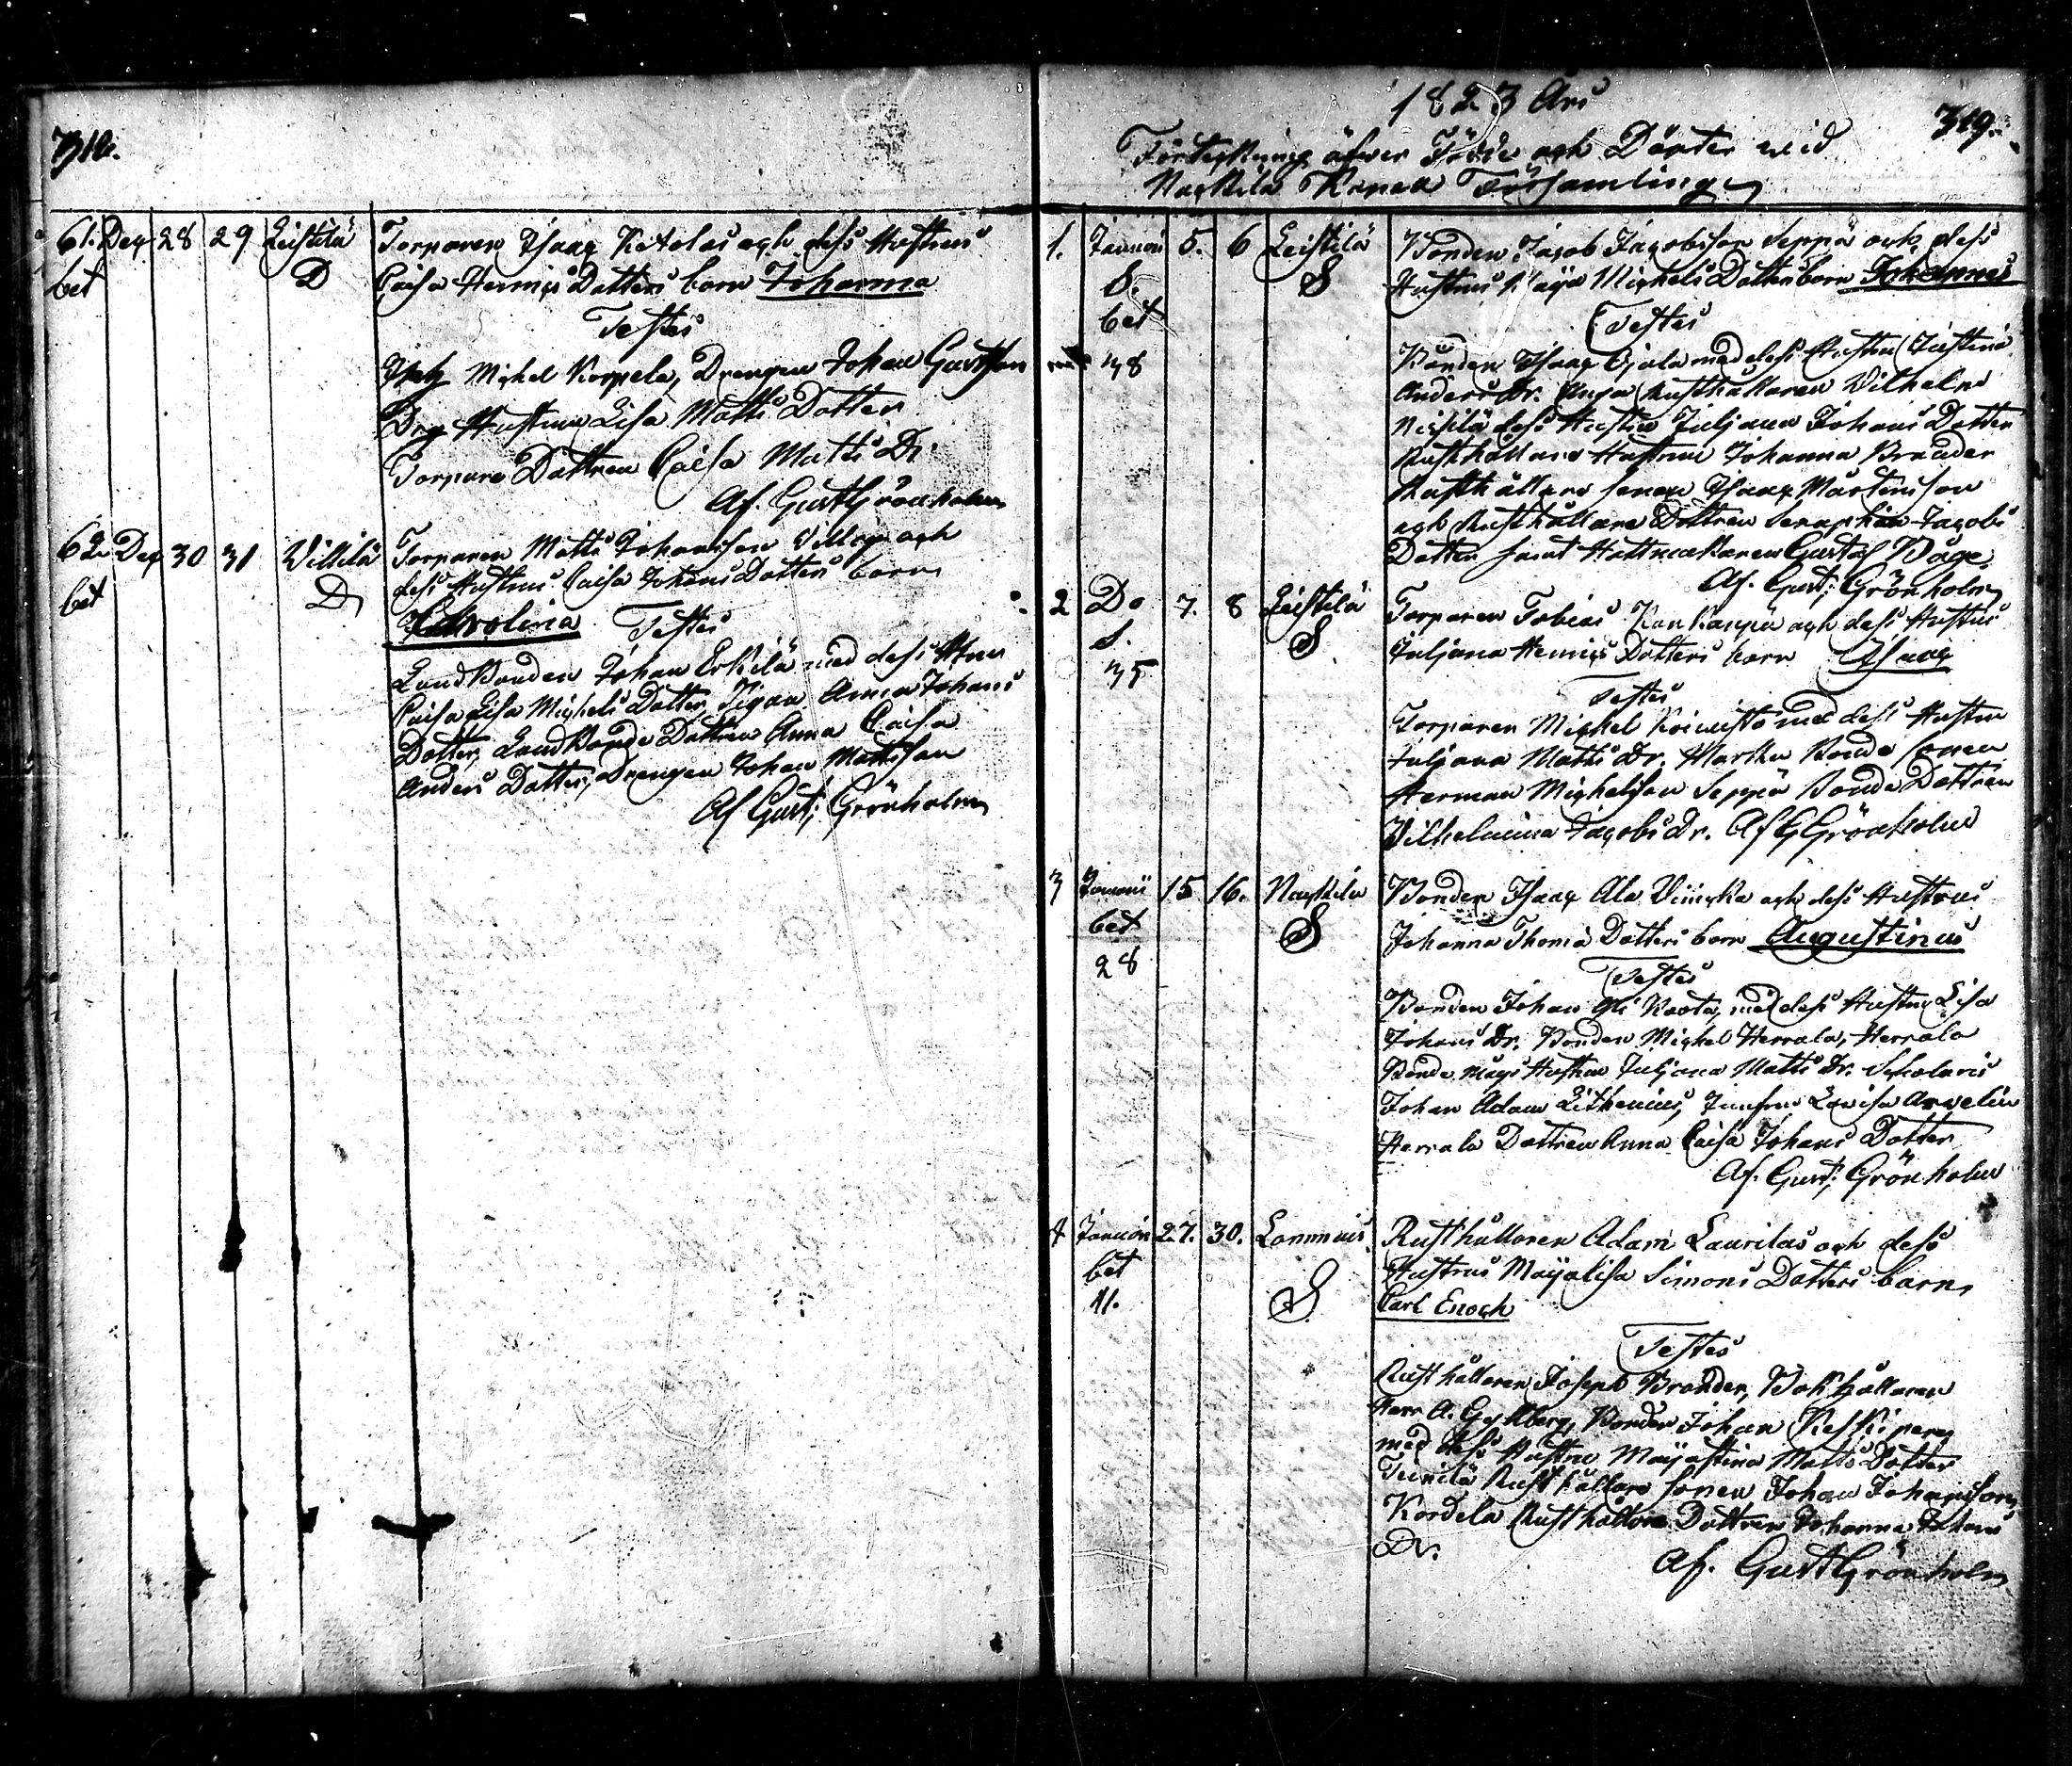 318.
61. Dec 28 29 Leistilä Torparen Isaac Ketolas och dess Hustrus
bet D Caisa Henrics Dotters barn Johanna
Testes
Michel Korpela, Drengen Johan Gustafson
Hustrun Lisa Matts Dotter
Torpare Dottren Caisa Matts Dr.
Af. Gust Grönholm
62 Dec 30 31 Villilä Torparen Matts Johansson och
bet D dess Hustrus Caisa Johans Dotters barn
Karolina Testes
Landbonden Johan Erkilä med dess
Caisa Lisa Michels Dotter, Pigan Anna Johans
Dotter, Landbonde Dottren Anna Caisa
Anders Dotter, Drengen Johan Mattsson
Af Gust; Grönholm
1823 Års 319.
Förteckning öfwer Födde och Döpte wid
Nackila Kapell Församling
1. Januari 5. 6 Leistilä Bonden Jacob Jacobsson Seppä och dess
S. S Hustrus Maja Michels Dotters barn Johannes
bet Testes
38 Bonden Isaac Ojala med dess Hustru Justina
Anders Dr. Rusthållaren Vilhelm
dess Hustru Juljana Johans Dotter
Rusthållare Hustrun Johanna Brander
Rusthållare sonen Isaac Mårtensson
och Rusthållare Dottren Seraphina Jacobs
Dotter samt Hattmakaren Gustaf Båge.
Af. Gust; Grönholm
2 Do 7. 8 Leistilä Torparen Tobias Kankanpä och dess Hustrus
S. S Juljana Henrics Dotters barn Isaac
35 Testes
Torparen Michel Koivisto med dess Hustru
Juljana Matts Dr. Bonde sonen
Herman Michelsson Seppä Bonde Dottren
Vilhelmina Jacobs Dr. Af G Grönholm
3 Januari 15 16. Nackila Bonden Isaac Ala Viinicka och dess Hustrus
bet S Johanna Thomæ Dotters barn Augustinus
28 Testes
Bonden Johan Yli Kaota, med dess Hustru Lisa
Johans Dr. Bonden Michel Herrala, Herrala
Bonde Mågs Hustrun Juljana Matts Dr. Scholaris
Johan Adam Lithenius, Jungfru Lovisa Arvelin
Herrala Dottren Anna Caisa Johans Dotter
Af. Gust; Grönholm
4 Januari 27. 30. Lammais Rusthållaren Adam Laurilas och dess
bet S Hustrus Majalisa Simons Dotters barn
41. Carl Enoch
Testes
Rusthållaren Joseph Brander, Bokhållaren
Herr A. Gyllberg, Bonden Johan Keskipery
med dess Hustru Majastina Matts Dotter
Tuirilä Rusthållare sonen Johan Johansson
Kordela Rusthållare Dottren Johanna Johans
Dr.
Af. Gust Grönholm